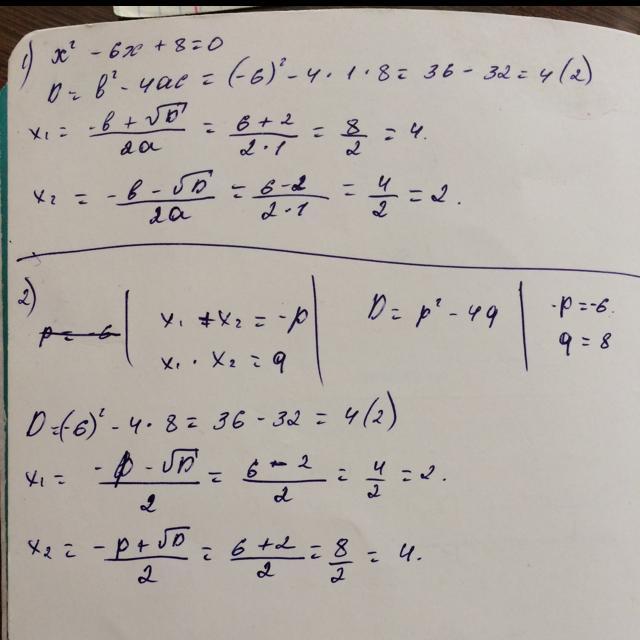 1) x² - 6x + 8 = 0
D = b² - 4ac = (-6)² - 4 · 1 · 8 = 36 - 32 = 4 (2)
x₁ = (-b + √D)/2a = (6 + 2)/(2·1) = 8/2 = 4.
x₂ = (-b - √D)/2a = (6 - 2)/(2·1) = 4/2 = 2.
2)
p = -6 | x₁ + x₂ = -p | D = p² - 4q | -p = -6
x₁ · x₂ = q | q = 8
D = (-6)² - 4 · 8 = 36 - 32 = 4 (2)
x₁ = (-p - √D)/2 = (6 - 2)/2 = 4/2 = 2.
x₂ = (-p + √D)/2 = (6 + 2)/2 = 8/2 = 4.